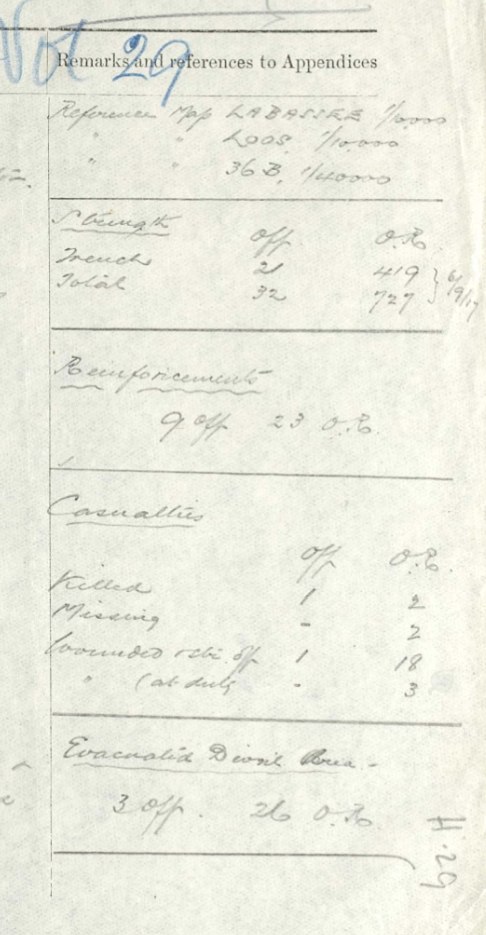 Vol 29
Remarks and references to Appendices
Reference Map LA BASSEE 1/10000
" " LOOS. 1/10000
" " 36 B. 1/40000
Strength
Off O.R.
Trench 21 419
Total 32 727
6/9/17
Reinforcements
9 Off 23 O.R.
Casualties
Off O.R.
Killed 1 2
Missing - 2
Wounded off 1 18
" (at duty - 3
Evacuated Divnl Area -
3 Off. 26 O.R.
H.29